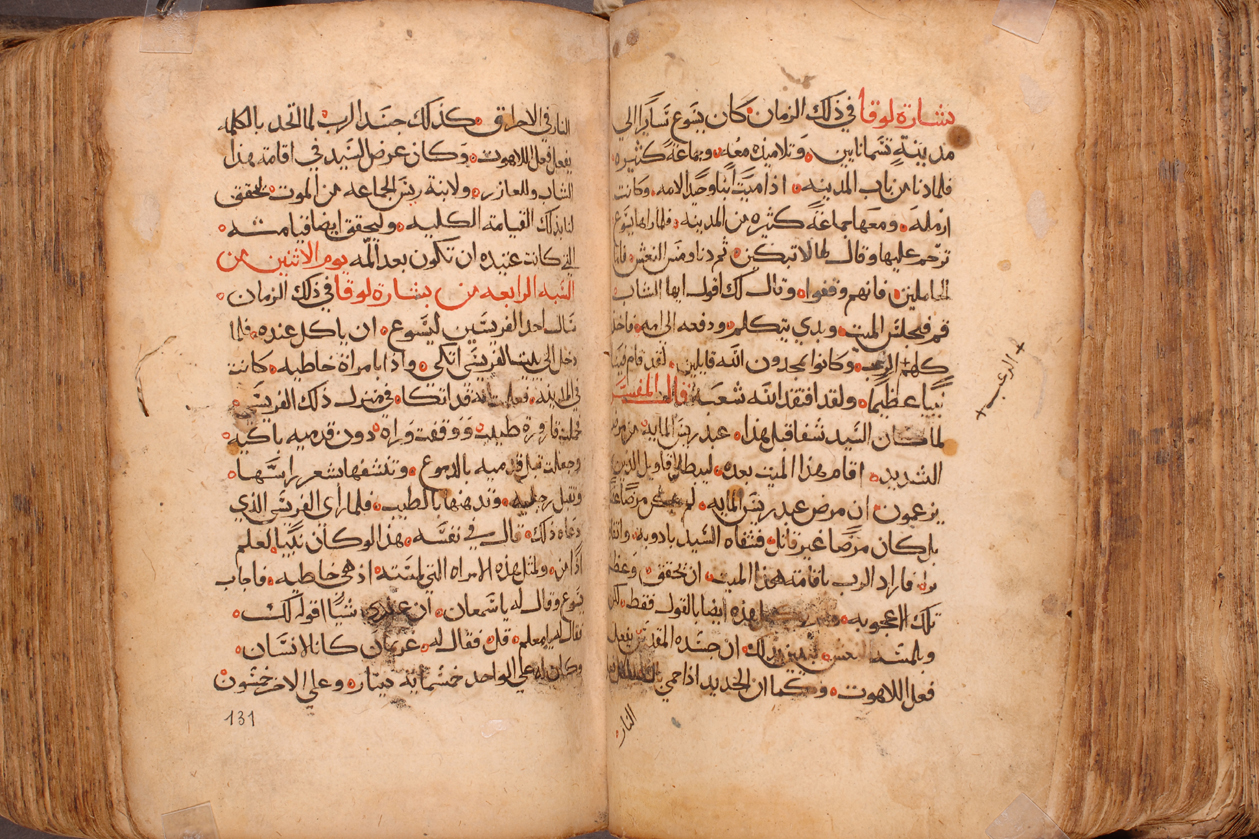 بشارة لوقا في ذلك الزمان كان يسوع سايرا الي
مدينة تسما نايين وتلاميذه معه وجماعة كثيره
فلما دنا من باب المدينه اذا ميت ابنا وحيدا لامه وكانت
ارمله ومعها جماعة كثيره من المدينه فلما راها يسوع
ترحم عليها وقال لها لا تبكين ثم دنا ومس النعش فاما
الحاملين فانهم وقفوا وقال لك اقول ايها الشاب
قم فجلس الميت وبدي يتكلم ودفعه الى امه فاخذ
كلهم الرعب وكانوا يمجدون الله قايلين لقد قام فينا
نبيا عظيما ولقد افتقد الله شعبه قال المفسر
لما كان السيد شفا قبل هذا عبد ريس المايه من مرضه
الشديد اقام هذا الميت بعده ليبطل اقاويل الذين
يزعمون ان مرض عبد ريس المايه لم يكن مرضا
بل كان مرضا غير قاتل فشفاه السيد بادويه
فاراد الرب باقامته هذا الميت ان يحقق
تلك الاعجوبه هذه ايضا بالقول فقط
وبلمسه النعش ليبين بذلك ان جسده المقدس يفعل
فعل اللاهوت وكما ان الحديد اذا حمي
النار
الرعب
النار في الاحراق كذلك جسد الرب لما اتحد بالكلمه
يفعل فعل اللاهوت وكان غرض السيد في اقامة هذا
الشاب وللعازر ولابنة ريس الجماعه من الموت لتحقق
لنا بذلك القيامة الكليه وليحقق ايضا قيامته
التي كانت عتيده ان تكون بعد المه يوم الاثنين من
السبه الرابعه من بشارة لوقا في ذلك الزمان
سال احد الفريسيين ليسوع ان ياكل عنده فلما
دخل الي بيت الفريسي اتكي واذا بامراة خاطيه كانت
في المدينه فعلمت انه قد اتكا في منزل ذلك الفريسي
حملت قارورة طيب ووقفت وراه دون قدميه باكيه
وجعلت تبل قدميه بالدموع وتنشفها بشعر راسها
وتقبل رجليه وتدهنها بالطيب فلما راى الفريسي الذي
دعاه ذلك قال في نفسه هذا لو كان نبيا لعلم
اذا من ولمثل هذه الامراه التي لمسته اذ هي خاطيه فاجاب
يسوع وقال له يا شمعان ان عندي شيا اقوله لك
فقال له يا معلم قل فقال له غريمان كانا لانسان
وكان له علي الواحد خمسماية دينار وعلي الاخر خمسون
131